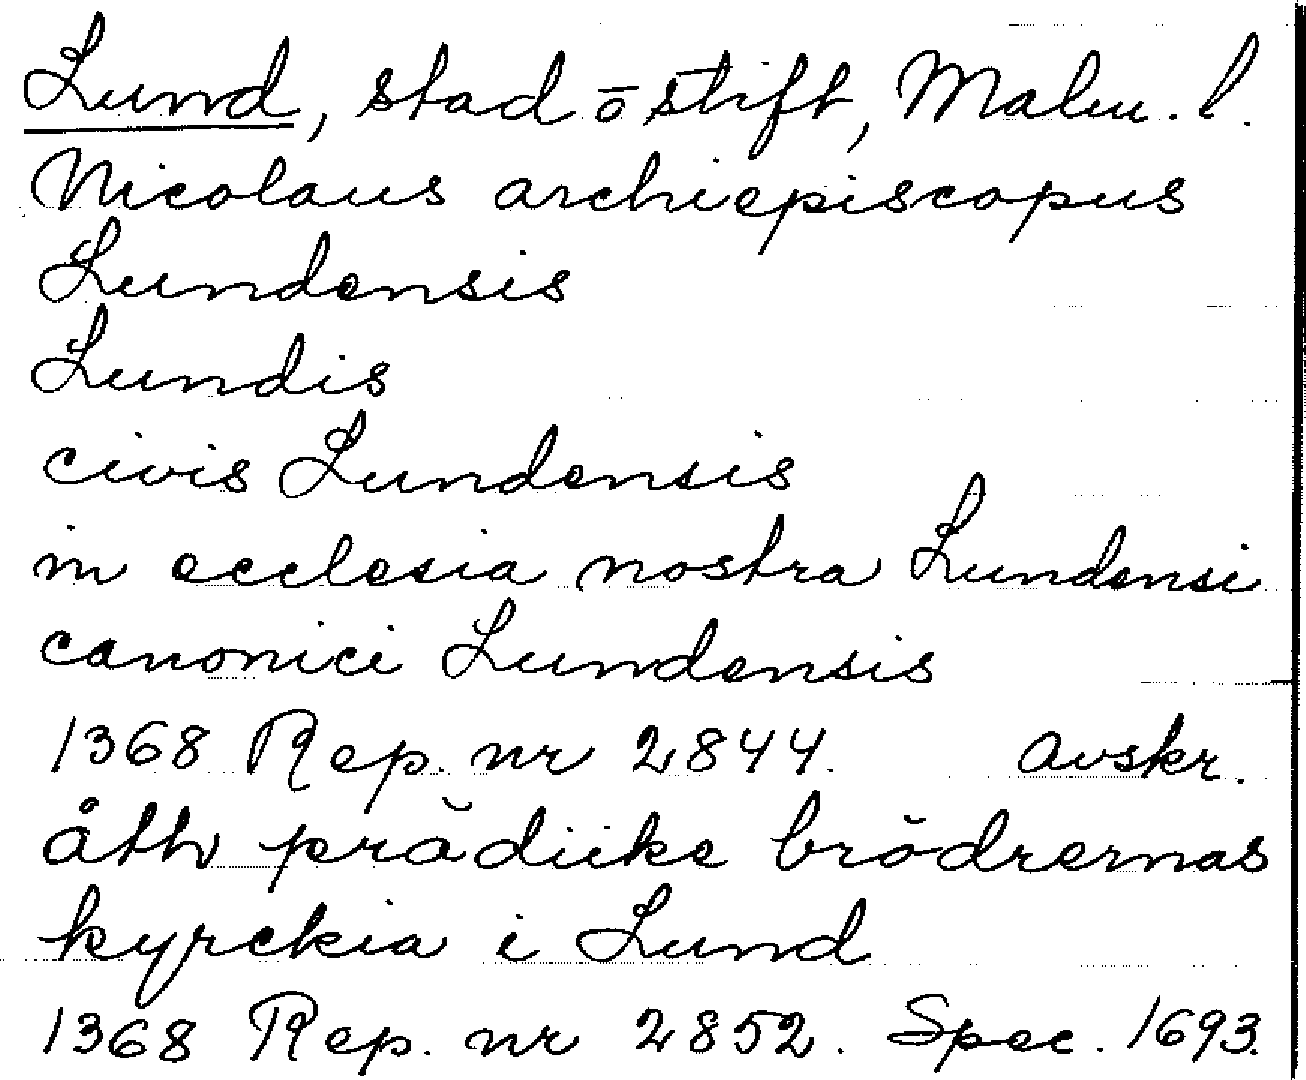 Lund, stad o stift, Malm. l.
Nicolaus archiepiscopus
Lundensis
Lundis
civis Lundensis
in ecclesia nostra Lundensi
canonici Lundensis
1368 Rep. nr 2844. avskr.
åth prädiike brödrernas
kyrckia i Lund
1368 Rep. nr 2852. Spec. 1693.